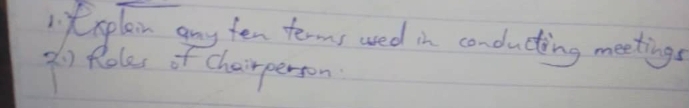 1. Explain any ten terms used in conducting meetings
2.) Roles of Chairperson.